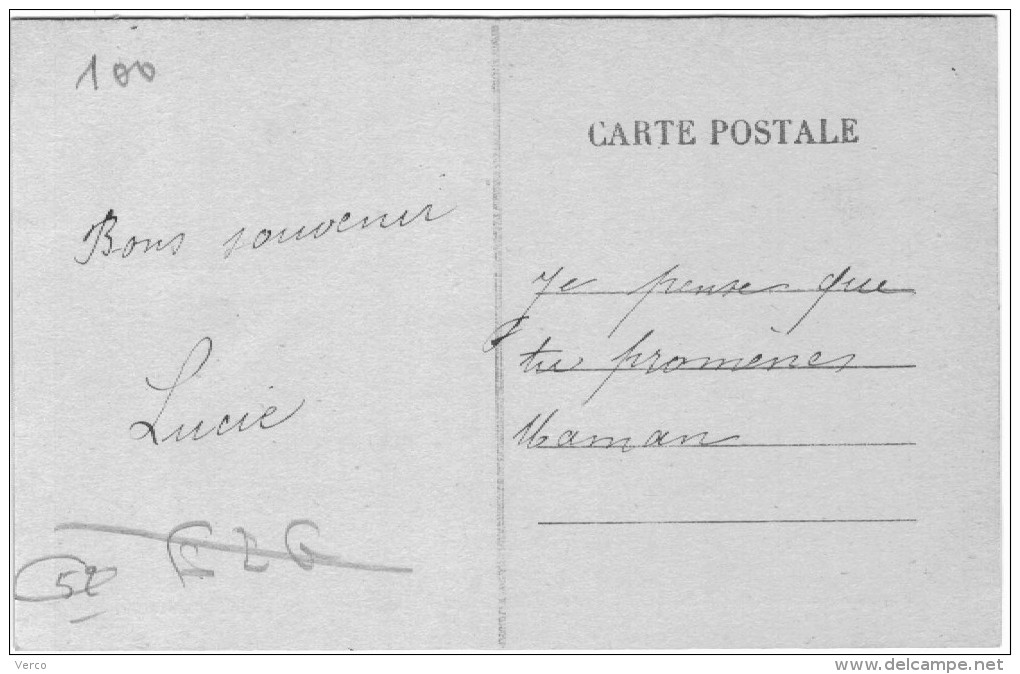 100
Bons souvenir
Lucie
52
CARTE POSTALE
Je penses que
tu promènes
Maman
Verco
www.delcampe.net